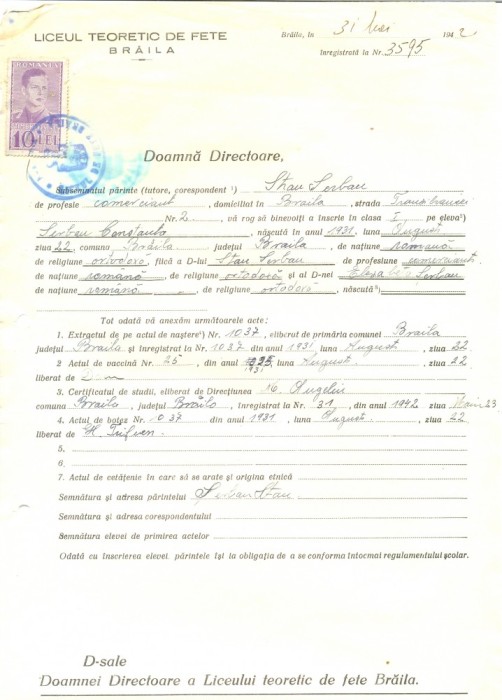 LICEUL TEORETIC DE FETE
BRĂILA
Brăila, în 31 Mai 1942
înregistrată la Nr. 3595
ROMANIA
10 LEI
Doamnă Directoare,
Subsemnatul părinte (tutore, corespondent ¹) Stan Serban
de profesie comerciant, domiciliat în Braila, strada
Nr. 2, vă rog să binevoiți a înscrie în clasa I, pe eleva ²)
Serban Constanta, născută în anul 1931, luna August
ziua 22, comuna Brăila județul Braila, de națiune română
de religiune ortodoxă, fiică a D-lui Stan Serban de profesiune comerciant
de națiune română, de religiune ortodoxă și al D-nei Serban
de națiune română, de religiune ortodoxă, născută ³)
Tot odată vă anexăm următoarele acte:
1. Extractul de pe actul de naștere ⁴) Nr. 1037, eliberat de primăria comunei Braila
județul Braila și înregistrat la Nr. 1037 din anul 1931 luna August, ziua 22
2 Actul de vaccină Nr. 25, din anul 1931, luna August, ziua 22
liberat de
3. Certificatul de studii, eliberat de Direcțiunea
comuna Brăila, județul Brăila, înregistrat la Nr. 31, din anul 1942 ziua 23
4. Actul de botez Nr. 1037 din anul 1931, luna August, ziua 22
liberat de
5.
6.
7. Actul de cetățenie în care să se arate și origina etnică
Semnătura și adresa părintelui Serban Stan
Semnătura și adresa corespondentului
Semnătura elevei de primirea actelor
Odată cu înscrierea elevei părintele își ia obligația de a se conforma întocmai regulamentului școlar.
D-sale
Doamnei Directoare a Liceului teoretic de fete Brăila.